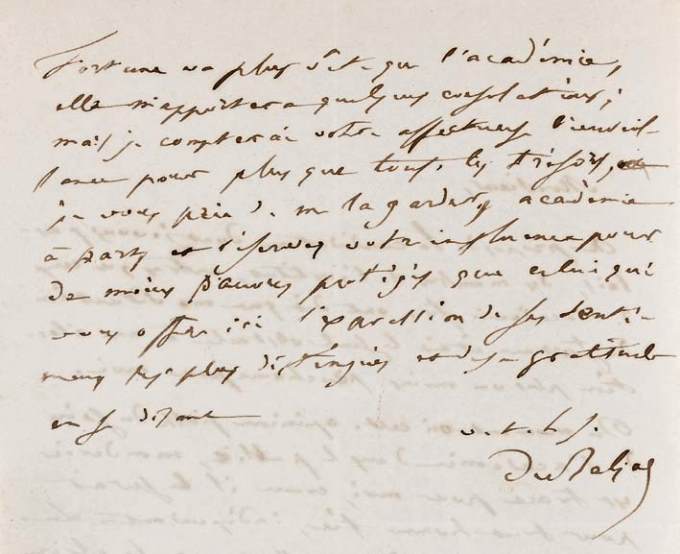 Fortune va plus vite que l'académie,
elle m'apportera quelques consolations;
mais je compterai votre affectueuse bienveil-
lance pour plus que tous les trésors,
je vous prie de me la garder, académie
à part, et réservez votre influence pour
de moins pauvres protégés que celui qui
vous offre ici l'expression de ses senti-
mens les plus distingués et de sa gratitude
en se disant
v. t. h. s.